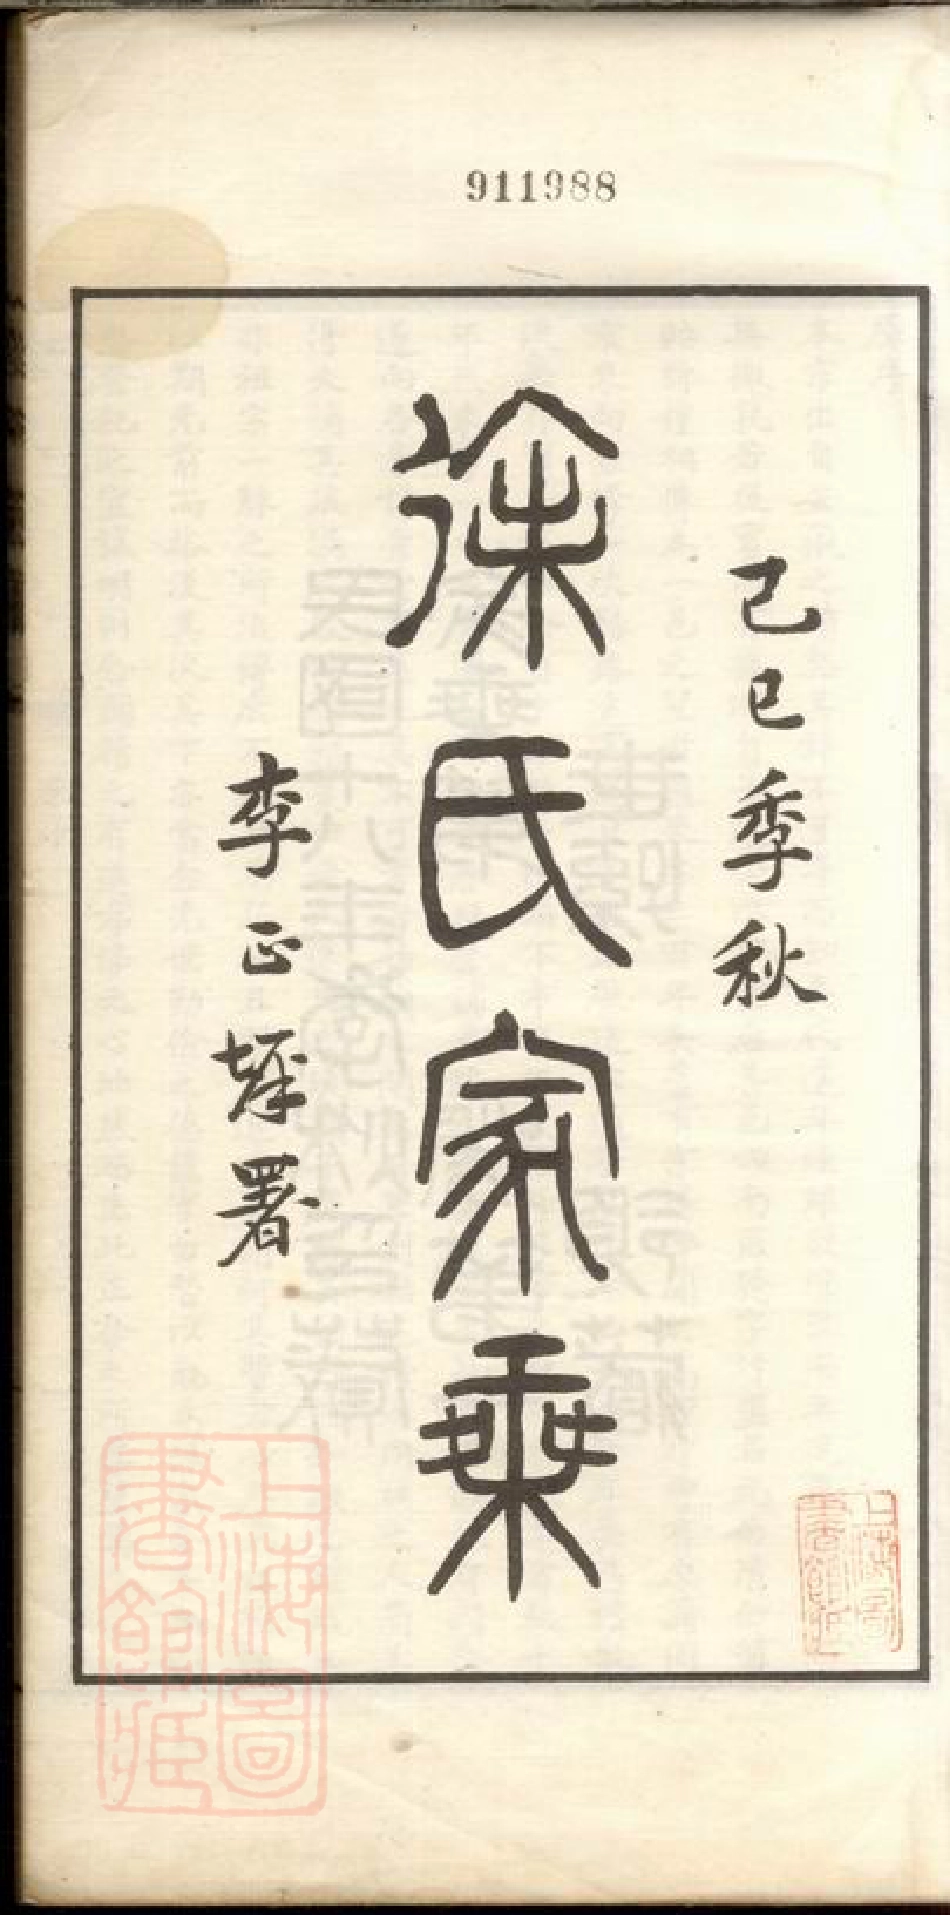 911988
己巳季秋
徐氏家乘
李正墀署
上海圖書館藏
上海圖書館藏